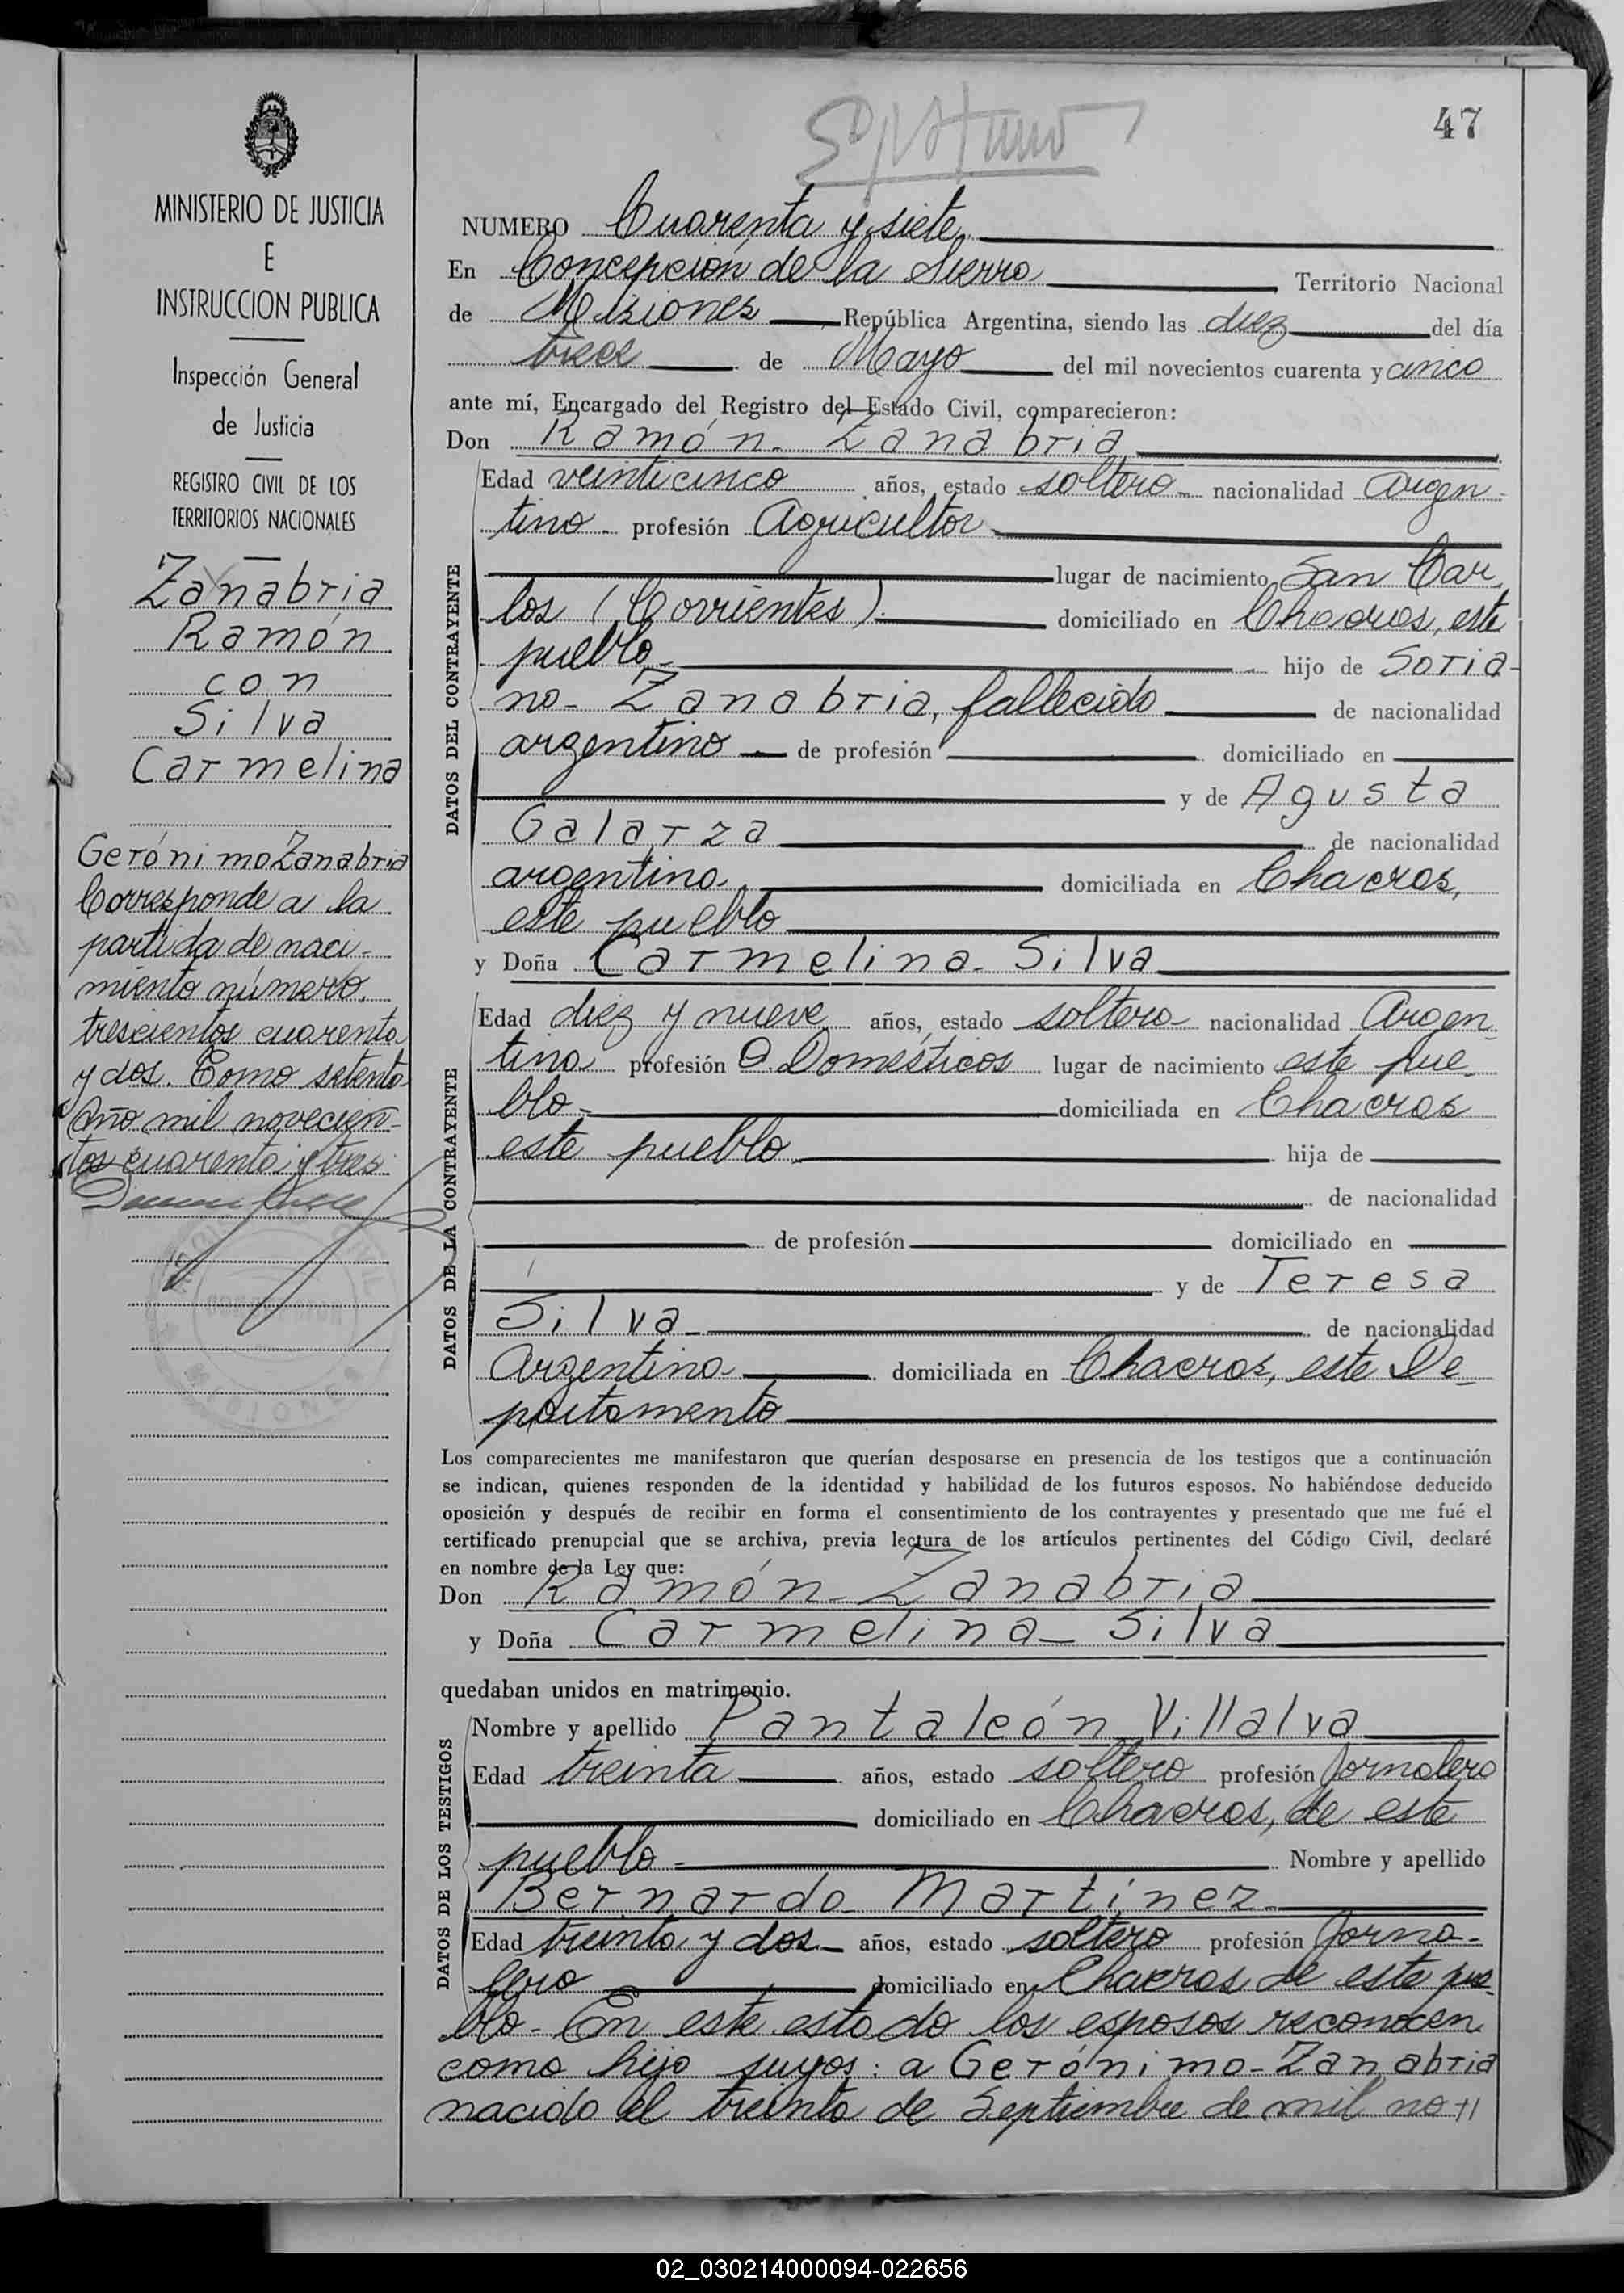 47
MINISTERIO DE JUSTICIA
E
INSTRUCCION PUBLICA
Inspección General
de Justicia
REGISTRO CIVIL DE LOS
TERRITORIOS NACIONALES
Zanabria
Ramón
con
Silva
Carmelina
Gerónimo Zanabria
Corresponde a la
partida de naci-
miento número
trescientos cuarenta
y dos. Tomo setenta
Año mil novecien-
tos cuarenta y tres
NUMERO Cuarenta y siete
En Concepcion de la Sierra Territorio Nacional
de Misiones República Argentina, siendo las diez del día
trece de Mayo del mil novecientos cuarenta y cinco
ante mí, Encargado del Registro del Estado Civil, comparecieron:
Don Ramón Zanabria
DATOS DEL CONTRAYENTE
Edad veinticinco años, estado soltero nacionalidad Argen-
tino profesión Agricultor
lugar de nacimiento San Car
los (Corrientes) domiciliado en Chacras, este
pueblo hijo de Soria-
no Zanabria, fallecido de nacionalidad
argentino de profesión domiciliado en
y de Agusta
Galarza de nacionalidad
argentina domiciliada en Chacras,
este pueblo
y Doña Carmelina Silva
DATOS DE LA CONTRAYENTE
Edad diez y nueve años, estado soltera nacionalidad Argen-
tina profesión Q. Domésticos lugar de nacimiento este pue-
blo domiciliada en Chacras
este pueblo hija de
de nacionalidad
de profesión domiciliado en
y de Teresa
Silva de nacionalidad
Argentina domiciliada en Chacras, este De-
partamento
Los comparecientes me manifestaron que querían desposarse en presencia de los testigos que a continuación
se indican, quienes responden de la identidad y habilidad de los futuros esposos. No habiéndose deducido
oposición y después de recibir en forma el consentimiento de los contrayentes y presentado que me fué el
certificado prenupcial que se archiva, previa lectura de los artículos pertinentes del Código Civil, declaré
en nombre de la Ley que:
Don Ramón Zanabria
y Doña Carmelina Silva
quedaban unidos en matrimonio.
DATOS DE LOS TESTIGOS
Nombre y apellido Pantaleón Villalva
Edad treinta años, estado soltero profesión Jornalero
domiciliado en Chacras, de este
pueblo Nombre y apellido
Bernardo Martínez
Edad treinta y dos años, estado soltero profesión Jorna-
lero domiciliado en Chacras de este pue-
blo - En este estado los esposos reconocen
como hijo suyos: a Gerónimo Zanabria
nacido el treinta de Septiembre de mil no
02_030214000094-022656